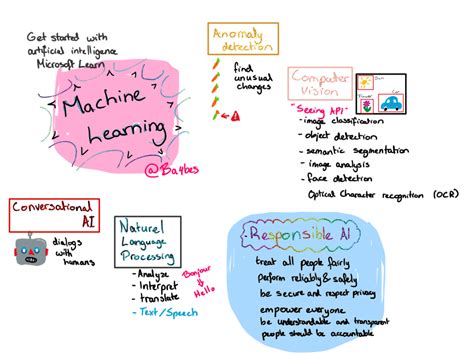 Get started with
artificial intelligence
Microsoft Learn
Machine
Learning
@Ba4bes
Anomaly
detection
find
unusual
changes
Computer
Vision
Sun
Flower
Car
"Seeing AI"
- image classification
- object detection
- semantic segmentation
- image analysis
- face detection
Optical Character recognition (OCR)
Conversational
AI
dialogs
with
humans
Naturel
Language
Processing
- Analyze
- Interpret
- translate
- Text/Speech
Bonjour
Hello
Responsible AI
treat all people fairly
perform reliably & safely
be secure and respect privacy
empower everyone
be understandable and transparent
people should be accountable